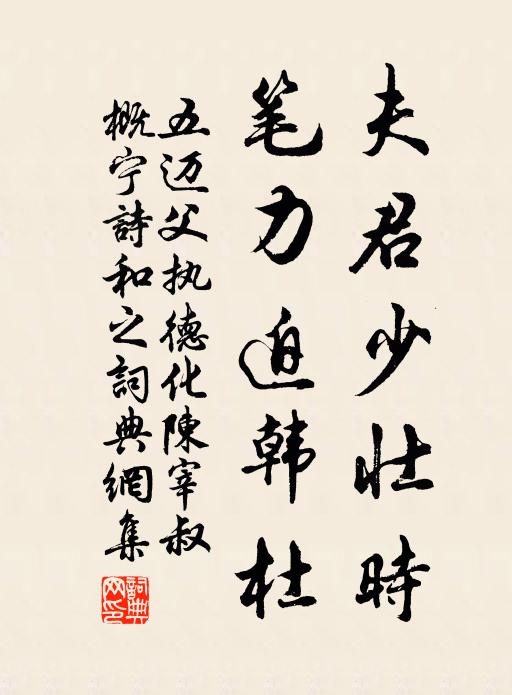 夫君少壮時
笔力迫韩杜
五迈父执德化陳宰叔
概宁詩和之詞典網集
詞典網印